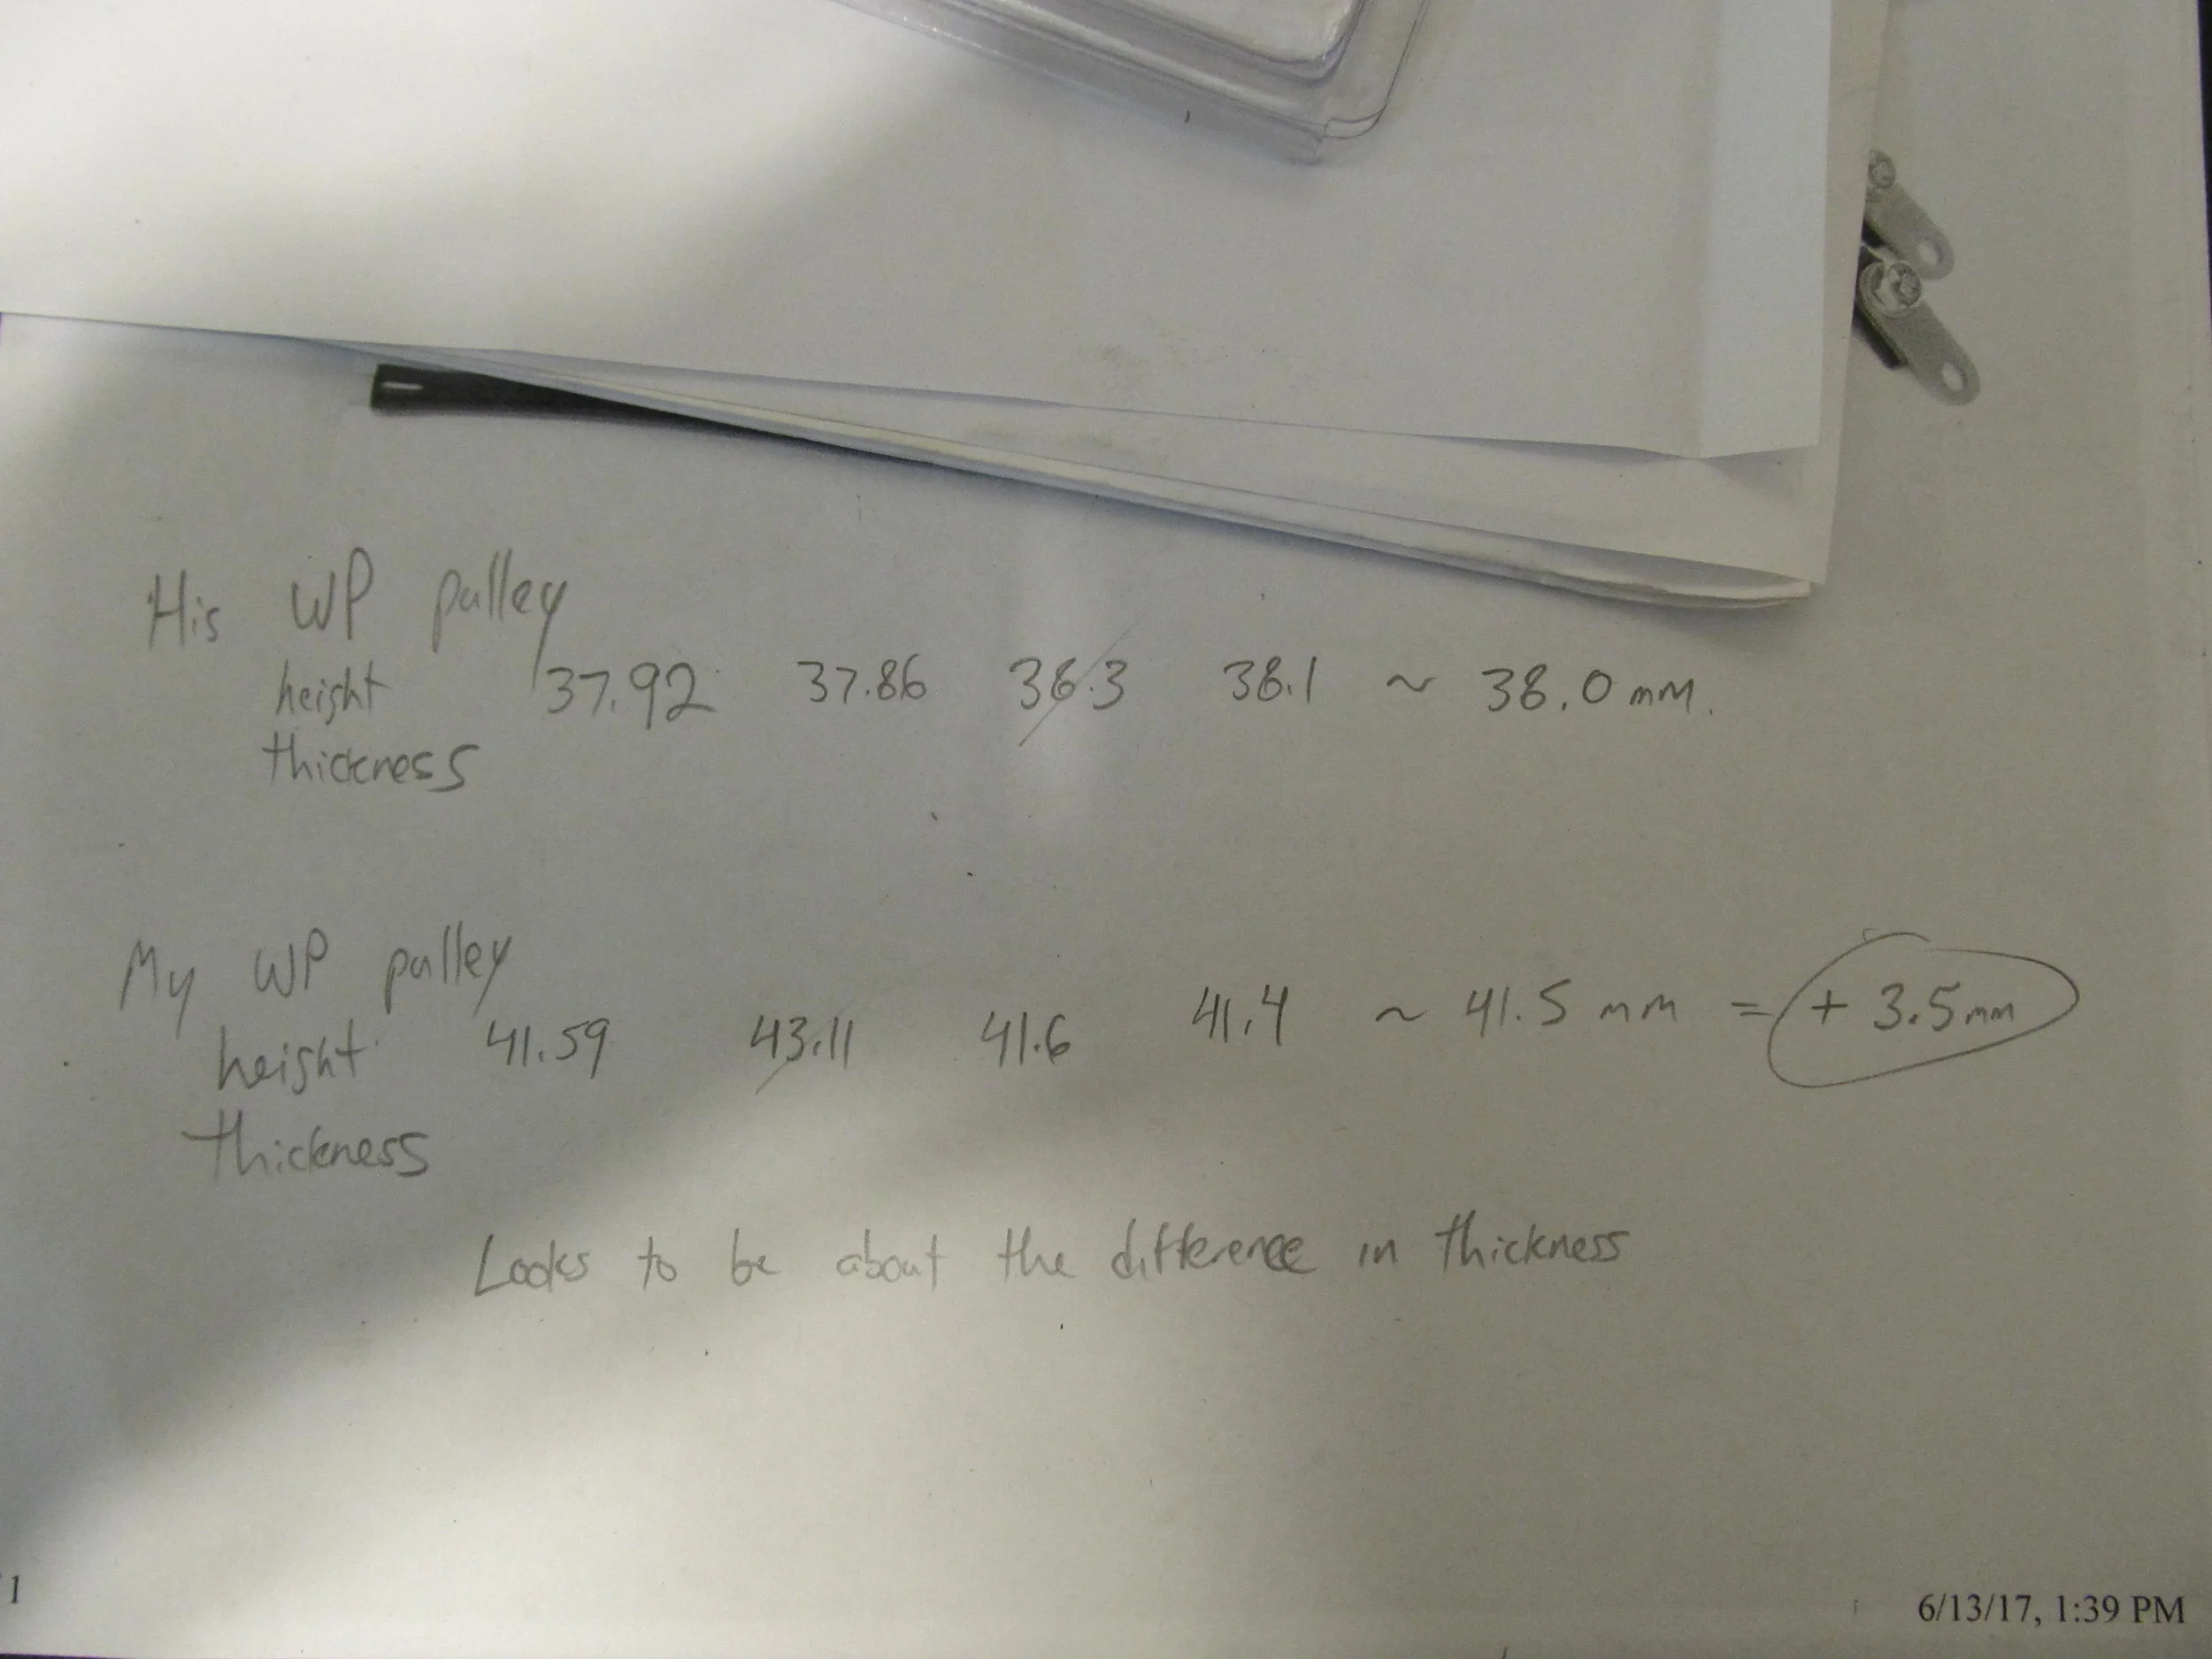 His WP pulley
height 37.92 37.86 36.3 38.1 ~ 38.0 mm.
thickness
My WP pulley
height 41.59 43.11 41.6 41.4 ~ 41.5 mm = + 3.5mm
thickness
Looks to be about the difference in thickness
1
6/13/17, 1:39 PM